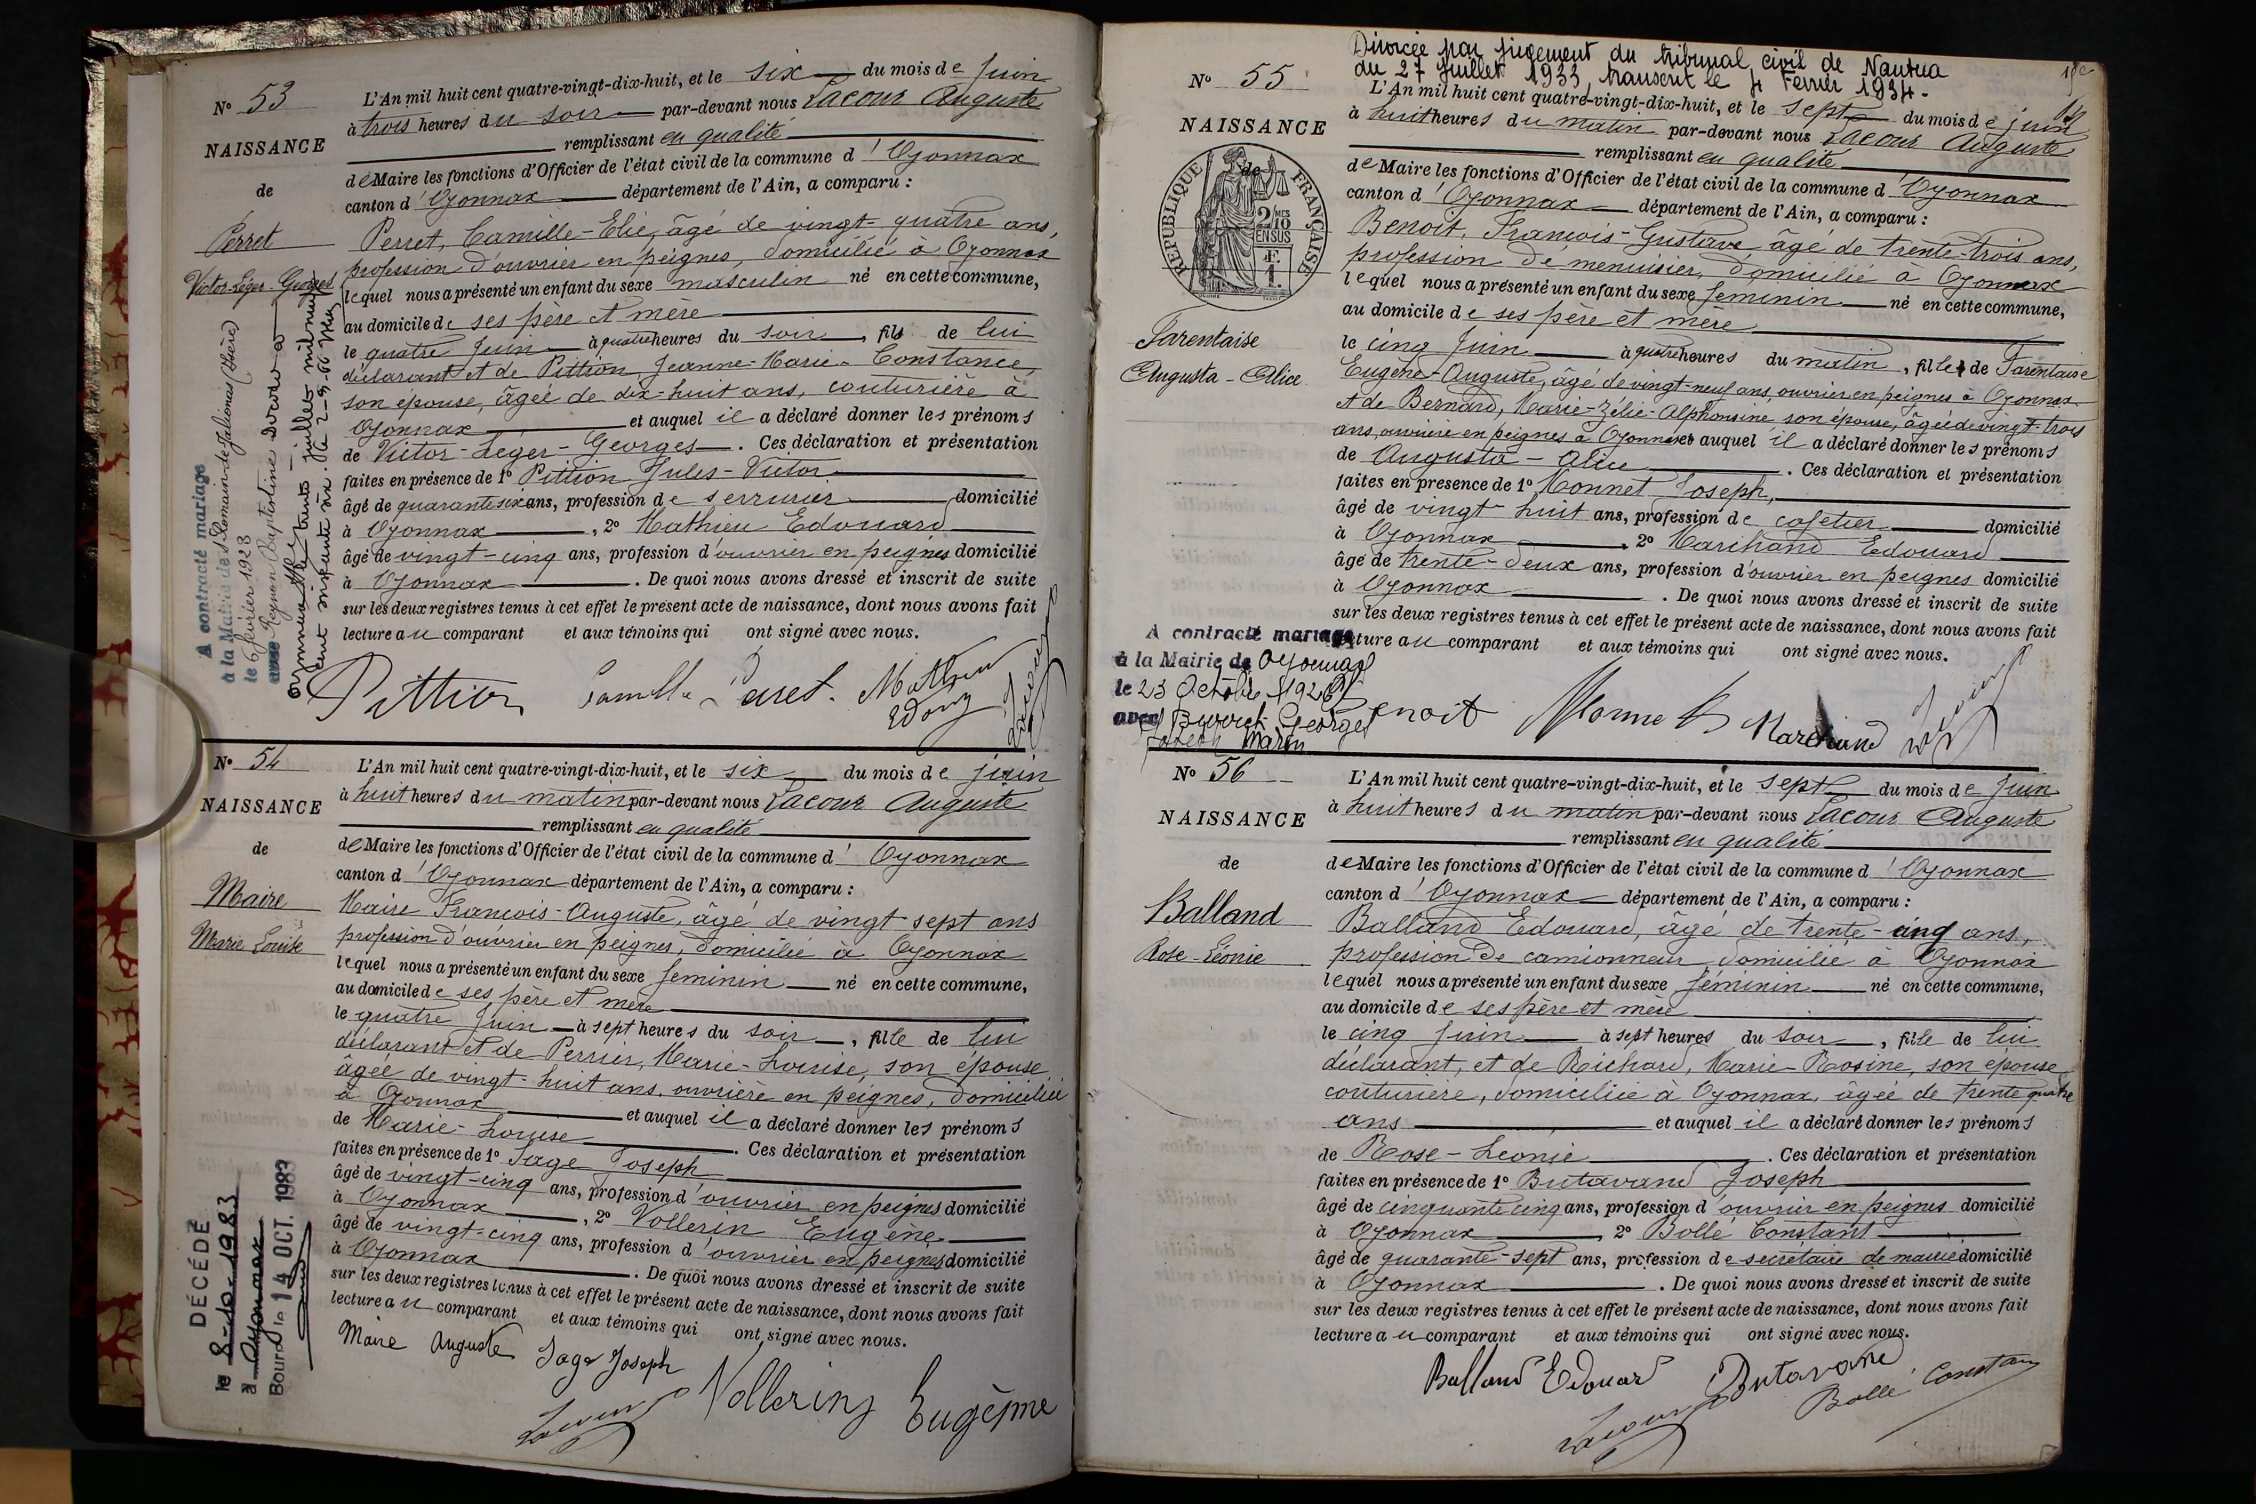 N° 53
NAISSANCE
de
Perret
Victor-Léger-Georges
L'An mil huit cent quatre-vingt-dix-huit, et le six du mois de Juin
à trois heures du soir par-devant nous Lacour Auguste
remplissant en qualité
de Maire les fonctions d'Officier de l'état civil de la commune d'Oyonnax
canton d'Oyonnax département de l'Ain, a comparu :
Perret, Camille-Elie, âgé de vingt-quatre ans,
profession d'ouvrier en peignes, domicilié à Oyonnax
lequel nous a présenté un enfant du sexe masculin né en cette commune,
au domicile de ses père et mère
le quatre Juin à quatre heures du soir, fils de lui
déclarant et de Pittion, Jeanne-Marie-Constance,
son épouse, âgée de dix-huit ans, couturière à
Oyonnax et auquel il a déclaré donner les prénoms
de Victor-Léger-Georges. Ces déclaration et présentation
faites en présence de 1° Pittion Jules-Victor
âgé de quarante six ans, profession de serrurier domicilié
à Oyonnax, 2° Mathieu Edouard
âgé de vingt-cinq ans, profession d'ouvrier en peignes domicilié
à Oyonnax. De quoi nous avons dressé et inscrit de suite
sur les deux registres tenus à cet effet le présent acte de naissance, dont nous avons fait
lecture au comparant et aux témoins qui ont signé avec nous.
A contracté mariage
à la Mairie de St Romain-de-Jalionas (Isère)
le 6 février 1928
avec Reynon Baptistine
Pittion Camille Perret Mathieu
Edouard
N° 54
NAISSANCE
de
Maire
Marie Louise
L'An mil huit cent quatre-vingt-dix-huit, et le six du mois de juin
à huit heures du matin par-devant nous Lacour Auguste
remplissant en qualité
de Maire les fonctions d'Officier de l'état civil de la commune d'Oyonnax
canton d'Oyonnax département de l'Ain, a comparu :
Maire François-Auguste, âgé de vingt sept ans
profession d'ouvrier en peignes, domicilié à Oyonnax
lequel nous a présenté un enfant du sexe féminin né en cette commune,
au domicile de ses père et mère
le quatre Juin à sept heures du soir, fille de lui
déclarant et de Perrier, Marie-Louise, son épouse
âgée de vingt-huit ans, ouvrière en peignes, domiciliée
à Oyonnax et auquel il a déclaré donner les prénoms
de Marie-Louise. Ces déclaration et présentation
faites en présence de 1° Sage Joseph
âgé de vingt-cinq ans, profession d'ouvrier en peignes domicilié
à Oyonnax, 2° Vollerin Eugène
âgé de vingt-cinq ans, profession d'ouvrier en peignes domicilié
à Oyonnax. De quoi nous avons dressé et inscrit de suite
sur les deux registres tenus à cet effet le présent acte de naissance, dont nous avons fait
lecture au comparant et aux témoins qui ont signé avec nous.
DÉCÉDÉ
le 8-10-1983
à Oyonnax
Bourg le 14 OCT. 1983
Maire Auguste Sage Joseph
Lacour Vollerin Eugène
Divorcée par jugement du tribunal civil de Nantua
du 27 Juillet 1933, transcrit le 4 Février 1934.
N° 55
NAISSANCE
de
RÉPUBLIQUE FRANÇAISE
2/10 MES
EN SUS
1 F.
Tarentaise
Augusta-Alice
L'An mil huit cent quatre-vingt-dix-huit, et le sept du mois de juin
à huit heures du matin par-devant nous Lacour Auguste
remplissant en qualité
de Maire les fonctions d'Officier de l'état civil de la commune d'Oyonnax
canton d'Oyonnax département de l'Ain, a comparu :
Benoit, François-Gustave âgé de trente-trois ans,
profession de menuisier, domicilié à Oyonnax
lequel nous a présenté un enfant du sexe féminin né en cette commune,
au domicile de ses père et mère
le cinq Juin à quatre heures du matin, fille de Tarentaise
Eugène-Auguste, âgé de vingt-neuf ans, ouvrier en peignes à Oyonnax
et de Bernard, Marie-Zélie-Alphonsine, son épouse, âgée de vingt-trois
ans, ouvrière en peignes à Oyonnax et auquel il a déclaré donner les prénoms
de Augusta-Alice. Ces déclaration et présentation
faites en présence de 1° Monnet Joseph,
âgé de vingt huit ans, profession de cafetier domicilié
à Oyonnax, 2° Marchand Edouard
âgé de trente-deux ans, profession d'ouvrier en peignes domicilié
à Oyonnax. De quoi nous avons dressé et inscrit de suite
sur les deux registres tenus à cet effet le présent acte de naissance, dont nous avons fait
lecture au comparant et aux témoins qui ont signé avec nous.
A contracté mariage
à la Mairie de Oyonnax
le 23 Octobre 1926
avec Georges
Joseph Marin
Benoit Monnet Marchand Lacour
N° 56
NAISSANCE
de
Balland
Rose-Léonie
L'An mil huit cent quatre-vingt-dix-huit, et le sept du mois de Juin
à huit heures du matin par-devant nous Lacour Auguste
remplissant en qualité
de Maire les fonctions d'Officier de l'état civil de la commune d'Oyonnax
canton d'Oyonnax département de l'Ain, a comparu :
Balland Edouard, âgé de trente-cinq ans,
profession de camionneur, domicilié à Oyonnax
lequel nous a présenté un enfant du sexe féminin né en cette commune,
au domicile de ses père et mère
le cinq Juin à sept heures du soir, fille de lui
déclarant, et de Richard, Marie-Rosine, son épouse
couturière, domiciliée à Oyonnax, âgée de trente quatre
ans et auquel il a déclaré donner les prénoms
de Rose-Léonie. Ces déclaration et présentation
faites en présence de 1° Butavand Joseph
âgé de cinquante cinq ans, profession d'ouvrier en peignes domicilié
à Oyonnax, 2° Bollé Constant
âgé de quarante-sept ans, profession de secrétaire de mairie domicilié
à Oyonnax. De quoi nous avons dressé et inscrit de suite
sur les deux registres tenus à cet effet le présent acte de naissance, dont nous avons fait
lecture au comparant et aux témoins qui ont signé avec nous.
Balland Edouard Butavand
Lacour Bollé Constant